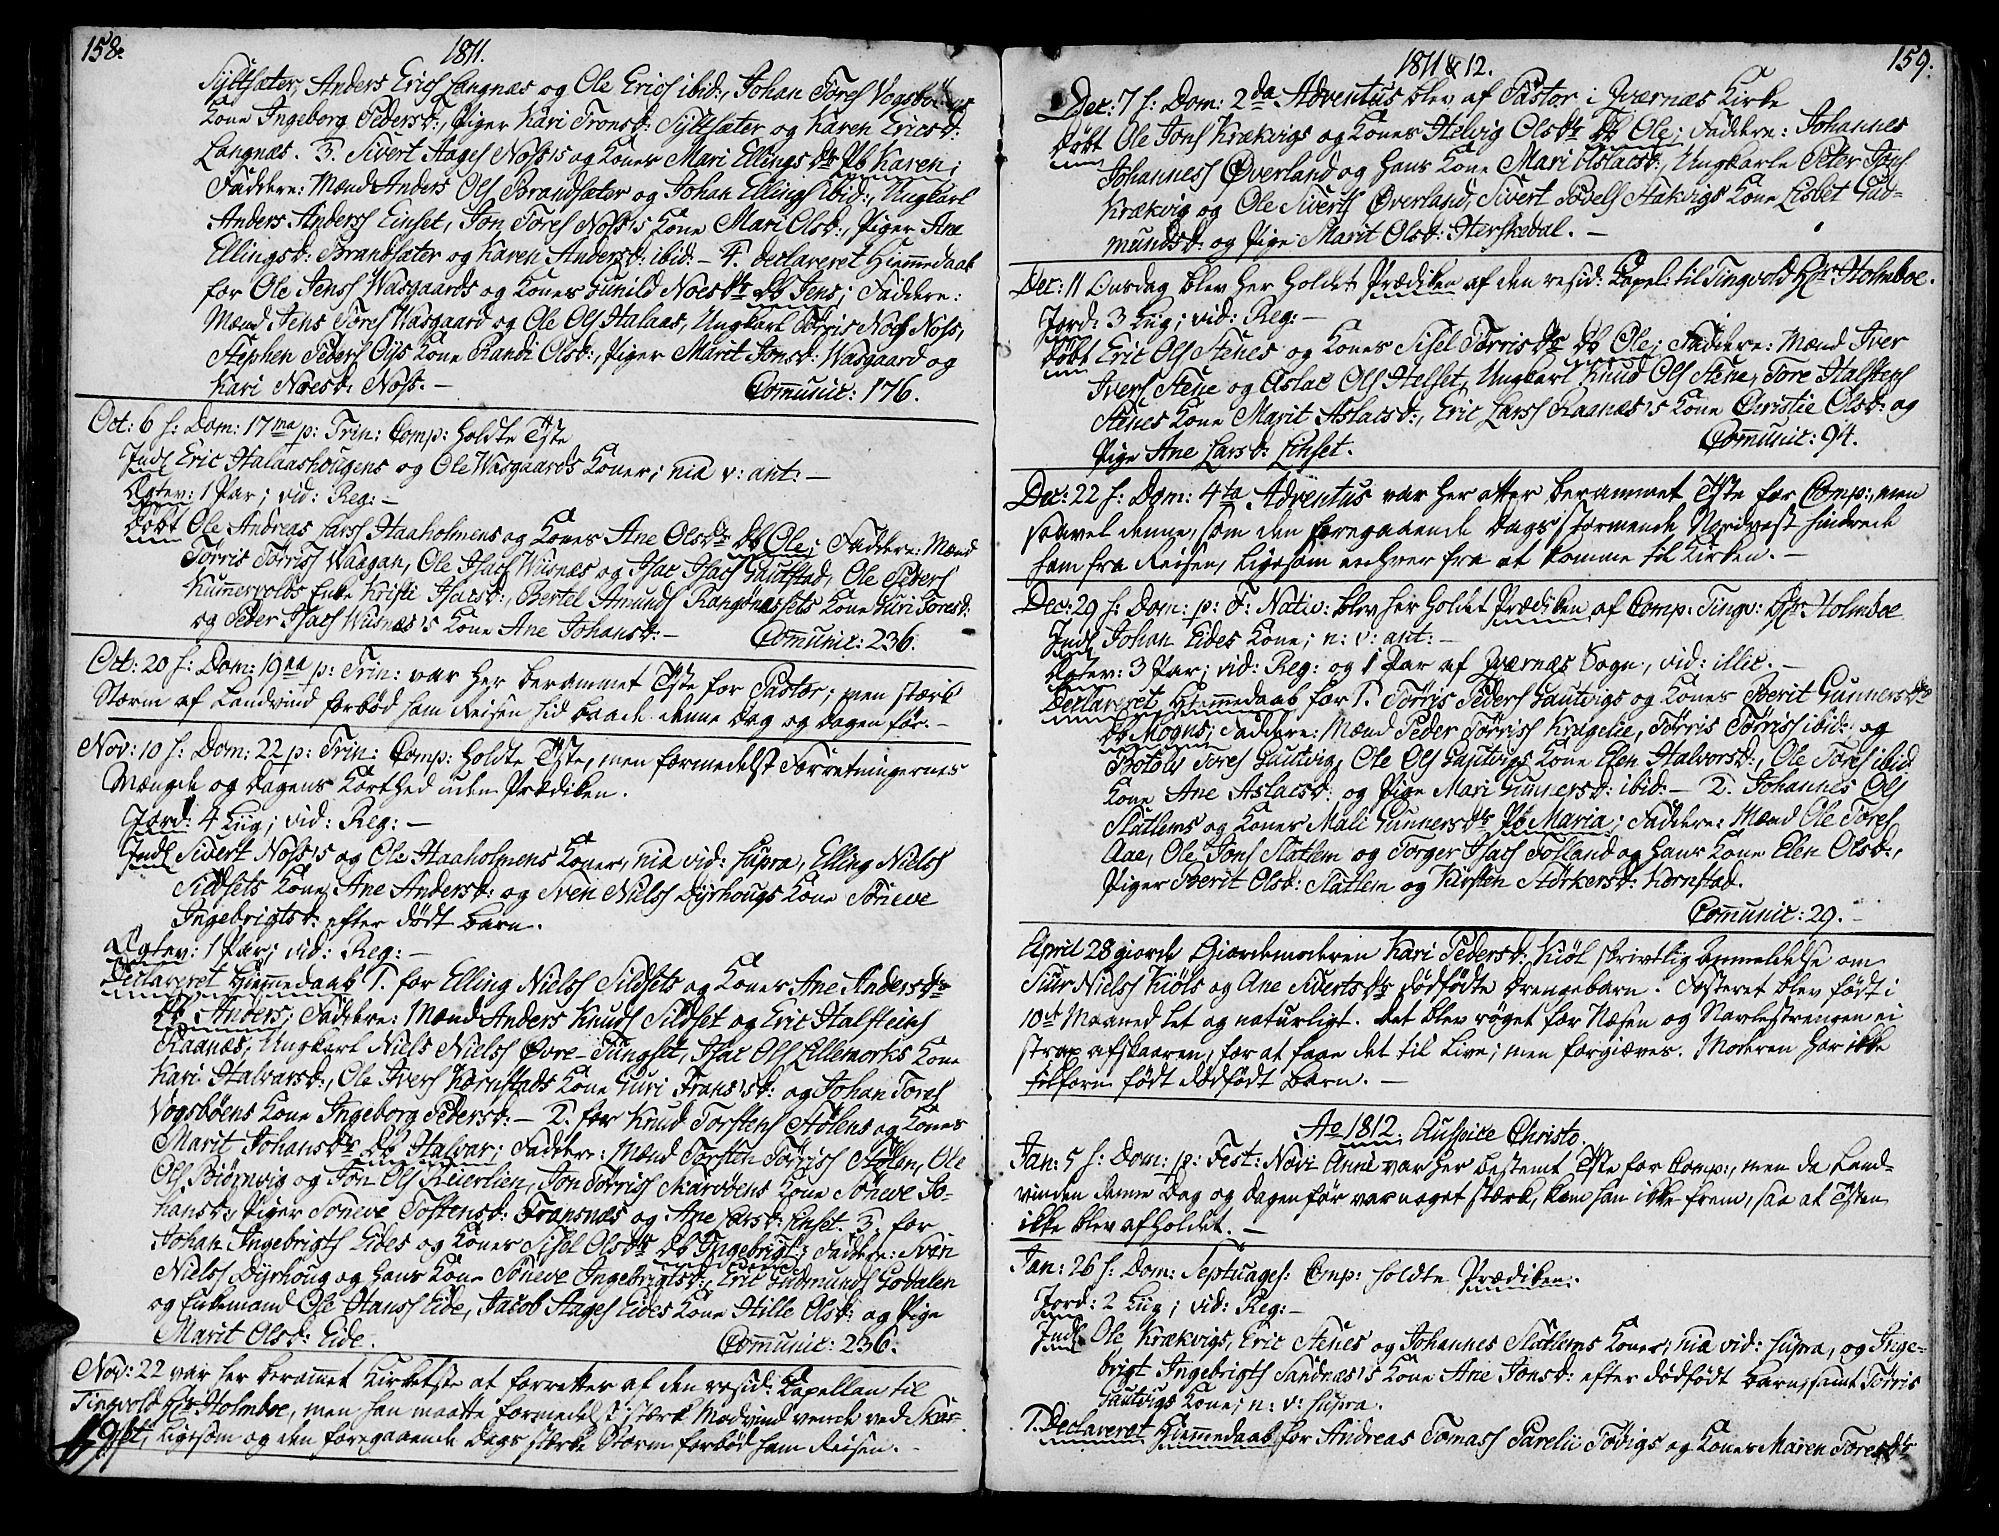 158.
1811.
Syltsæter, Anders Erics Langnæs og Ole Erics ibid:, Johan Tores Vogsbøens
Kone Ingeborg Pedersd:, Piger Kari Tronsd: Syltsæter og Karen Ericsd:
Langnæs. 3. Sivert Aages Noss's og Kones Mari Ellingsdr Pb Karen;
Faddere: Mænd Anders Ols Brandsæter og Johan Ellings ibid:, Ungkarl
Anders Anderss Einset, Jon Tores Noss's Kone Mari Olsd:, Piger Ane
Ellingsd: Brandsæter og Karen Andersd: ibid:- 4. declareret Hiemmedaab
for Ole Jenss Wasgaards og Kones Gunild Noesdr Db Jens; Faddere:
Mænd Jens Tores Wasgaard og Ole Ols Halaas, Ungkarl Tørris Noes Noss,
Stephen Peders Øys Kone Randi Olsd:, Piger Marit Jonsd: Wasgaard og
Kari Noesd: Noss. - Communic: 176.
Oct: 6 s: Dom: 17ma p: Trin: Comp: holdte Tste
Indl Eric Halaashougens og Ole Wasgaards Koner; nia v: ant: -
Egtev: 1 Par; vid: Reg: -
Døbt Ole Andreas Larss Haaholmens og Kones Ane Olsdr Db Ole; Faddere: Mænd
Tørris Tørriss Waagan, Ole Isacs Wiisnæs og Isac Isacs Gustad, Ole Peders
Kummervolds Enke Kristi Isacsd:, Bertel Amunds Rangønessets Kone Guri Toresd:
og Peder Isacs Wiisnæs's Kone Ane Johansd: - Communic: 236.
Oct: 20 s: Dom: 19na p: Trin: var her berammet Tste for Pastor; men stærk
Storm af Landvind forbød ham Reisen hid baade denne Dag og dagen før. -
Nov: 10 s: Dom: 22 p: Trin: Comp: holdte Tste, men formedelst Forretningernes
Mængde og Dagens Korthed uden Prædiken.
Jord: 4 Liig; vid: Reg: -
Indl Sivert Noss's og Ole Haaholmens Koner, nia vid: supra, Elling Niels
Sildsets Kone Ane Andersd: og Sven Niels Dyrhougs Kone Søneve
Ingebrigtsd: efter dødt Barn.
Egtev: 1 Par; vid: Reg: -
Declareret Hiemmedaab 1. for Elling Niels Sildsets og Kones Ane Andersdr
Db Anders; Faddere: Mænd Anders Knuds Sildset og Eric Halsteins
Raanæs, Ungkarl Niels Nielss Øvre-Tungset, Isac Ols Ellemorks Kone
Kari Halvarsd:, Ole Ivers Kornstads Kone Guri Frans'sd: og Johan Tores
Vogsbøens Kone Ingeborg Pedersd: - 2. for Knud Torstens Stølens og Kones
Marit Johansdr Db Halvar; Faddere: Mænd Torsten Tørriss Stølen, Ole
Ols Biørnvig og Jon Ols Reierlien, Jon Tørriss Marvøens Kone Søneve Jo-
hansd:, Piger Søneve Tostensd: Frapsnæs og Ane Larsd: Einset. 3. for
Johan Ingebrigts Eides og Kones Sisel Olsdr Db Ingebrigt; Faddere: Sven
Niels Dyrhoug og hans Kone Søneve Ingebrigtsd:, Eric Gudmunds Godalen
og Enkemand Ole Hanss Eide, Jacob Aages Eides Kone Hille Olsd: og Pige
Marit Olsd: Eide. Communic: 236.
Nov: 22 var her berammet Kirketste at forretter af den resid: Kapellan til
Tingvold Hr Holmboe, men han maatte formedelst stærk Modvind vende ved
ligesom og den foregaaende Dags stærke Storm forbød ham Reisen. -
1811 & 12.
159.
Dec: 7 s: Dom: 2da Adventus blev af Pastor i Qværnæs Kirke
døbt Ole Jons Krækvigs og Kones Helvig Olsdr Db Ole; Faddere: Johannes
Johanness Øverland og hans Kone Mari Oslacsd:, Ungkarle Peter Jons
Krækvig og Ole Siverts Øverland, Sivert Povels Hakvigs Kone Lisbet Gud-
mundsd: og Pige Marit Olsd: Herskedal. -
Dec: 11 Onsdag blev her holdet Prædiken af den resid: Capel: til Tingvold Hr Holmboe.
Jord: 3 Liig; vid: Reg: -
døbt Eric Ols Stenes og Kones Sisel Tørrisdr Db Ole; Faddere: Mænd Iver
Ivers Stene og Aslac Ols Helset, Ungkarl Knud Ols Stene, Tore Halstens
Stenes Kone Marit Aslacsd:, Eric Larss Raanæs's Kone Christie Olsd: og
Pige Ane Larsd: Einset. Communic: 94.
Dec: 22 s: Dom: 4ta Adventus var her atter berammet Tste for Comp:, men
saavel denne, som den foregaaende Dags stormende Nordvest hindrede
ham fra Reisen, ligesom enhver fra at komme til Kirken. -
Dec: 29 s: Dom: p: F: Nativ: blev her holdet Prædiken af Comp: Tingv: Hr Holmboe
Indl Johan Eides Kone; n: v: ant: -
Egtev: 3 Par; vid: Reg: og 1 Par af Qværnæs Sogn, vid: illic. -
Declareret Hiemmedaab for 1. Tørris Peders Gautvigs og Kones Berit Gunnersdr
Db Mogns; Faddere: Mænd Peder Tørriss Kragelie, Tørris Tørriss ibid: og
Botolv Tores Gautvig, Ole Ols Gautvigs Kone Elen Halvorsd:, Ole Tores ibid
Kone Ane Aslacsd: og Pige Mari Gunnersd: ibid: - 2. Johannes Ols
Slatlems og Kones Mali Gunnersdr Pb Maria; Faddere: Mænd Ole Tores
Aae, Ole Jons Slatlem og Torger Isacs Folland og hans Kone Elen Olsd:,
Piger Berit Olsd: Slatlem og Kirsten Størkersd: Kornstad.
Communic: 29. -
April 28 giorde Giordemoderen Kari Pedersd: Kiøl skrivtlig Anmeldelse om
Siur Nielss Kiøls og Ane Sivertsdr dødfødte Drengebarn. Fosteret blev født i
10de Maaned let og naturligt. Det blev røget for Næsen og Navlestrengen ei
strax afskaaren, for at faae det til Live; men forgiæves. Moderen har ikke
tilforn født dødfødt Barn. -
Ao 1812. Auspice Christo.
Jan: 5 s: Dom: p: Fest: Novi Anni var her bestemt Tste for Comp:, men da Land-
vinden denne Dag og dagen før var noget stærk, kom han ikke frem, saa at Tsten
ikke blev afholdet. -
Jan: 26 s: Dom: Septuages: Comp: holdte Prædiken.
Jord: 2 Liig; vid: Reg: -
Indl Ole Krækvigs, Eric Stenes og Johannes Slatlems Koner, nia vid: supra, og Inge-
brigt Ingebrigts Sandnæs's Kone Ane Jonsd: efter dødfødt Barn, samt Tørris
Gautvigs Kone; n: v: supra.
1. Declareret Hiemmedaab for Andreas Tomass Parelii Tøvigs og Kones Maren Toresdr